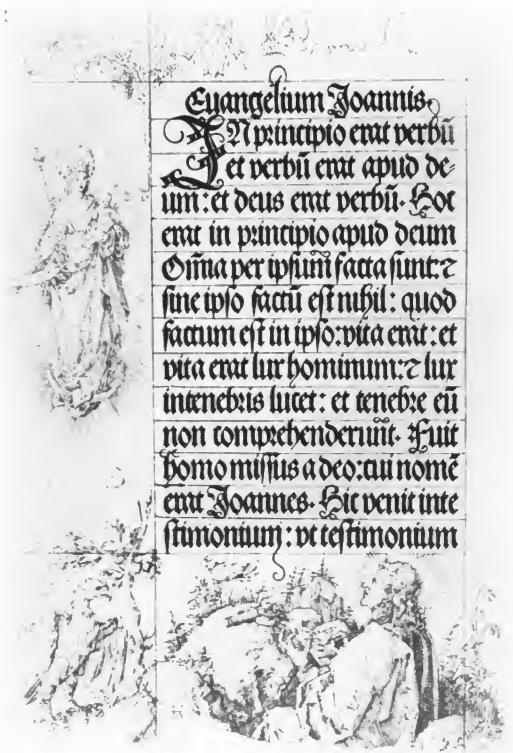 Euangelium Joannis.
IN principio erat verbū
et verbū erat apud de-
um: et deus erat verbū. Hoc
erat in principio apud deum
Oīnia per ipsum facta sunt: ⁊
sine ipso factū est nihil: quod
factum est in ipso: vita erat: et
vita erat lux hominum: ⁊ lux
intenebris lucet: et tenebre eū
non comprehenderunt. Fuit
homo missus a deo: cui nomē
erat Joannes. Hic venit inte
stimonium: vt testimonium